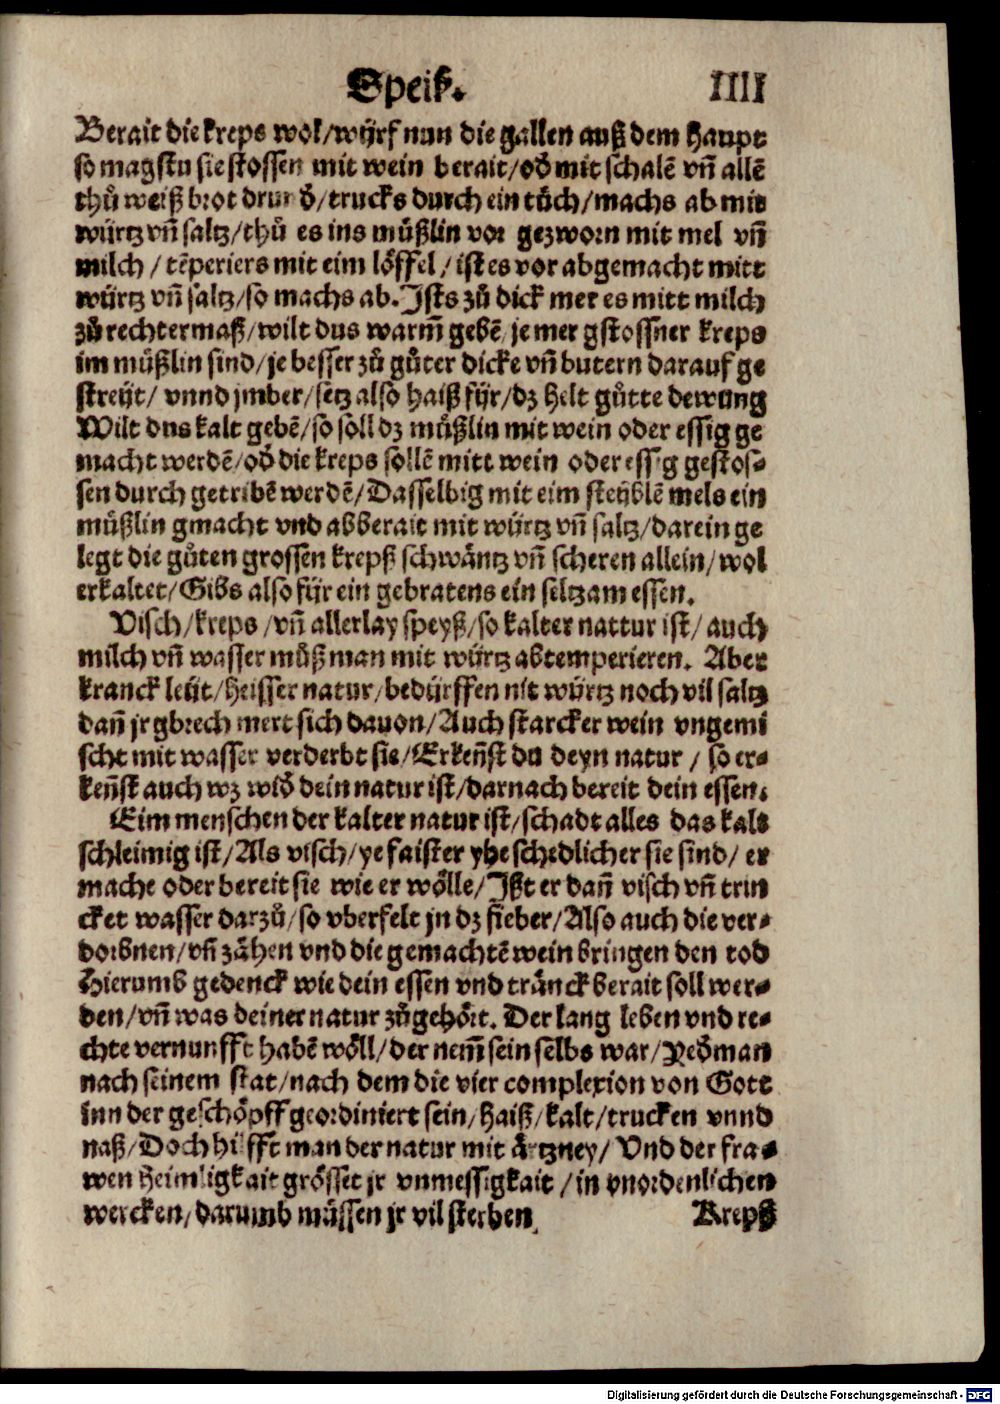 Speiß. IIII
Berait die kreps wol/wÿrf nun die gallen auß dem haupt
so magstu sie stossen mit wein berait/oð mit schalē vñ allē
thů weiß brot drund/trucks durch ein tůch/machs ab mit
würtz vñ saltz/thů es ins müßlin vor gezworn mit mel vñ
milch / tēperiers mit eim löffel / ist es vor abgemacht mitt
würtz vñ saltz/so machs ab. Ists zů dick mer es mitt milch
zů rechter maß/wilt dus warm̄ gebē/je mer gstossner kreps
im müßlin sind/je besser zů gůter dicke vñ butern darauf ge
streÿt/ vnnd jmber/setz also haiß fÿr/dz helt gůtte dewung
Wilt dus kalt gebē/so soll dz müßlin mit wein oder essig ge
macht werdē/oð die kreps sollē mitt wein oder essig gestos-
sen durch getribē werdē/Dasselbig mit eim steÿblē mels ein
müßlin gmacht vnd abberait mit würtz vñ saltz/darein ge
legt die gůten grossen krepß schwäntz vñ scheren allein/wol
erkaltet/Gibs also fÿr ein gebratens ein seltzam essen.
Visch/kreps/vñ allerlay speyß/so kalter nattur ist/auch
milch vñ wasser můß man mit würtz abtemperieren. Aber
kranck leüt/heisser natur/bedÿrffen nit würtz noch vil saltz
dañ jr gbrech mert sich dauon/Auch starcker wein vngemi
scht mit wasser verderbt sie/Erkeñst du deyn natur / so er-
keñst auch wz wið dein natur ist/darnach bereit dein essen.
Eim menschen der kalter natur ist/schadt alles das kalt
schleimig ist/Als visch/ye faister yhe schedlicher sie sind/ er
mache oder bereit sie wie er wölle/Jßt er dañ visch vñ trin
cket wasser darzů/so vberfelt jn dz fieber/Also auch die ver-
dorbnen/vñ zähen vnd die gemachtē wein bringen den tod
Hierumb gedenck wie dein essen vnd tränck berait soll wer-
den/vñ was deiner natur zůgehört. Der lang leben vnd re-
chte vernunfft habē wöll/der nem̄ sein selbs war/Yeðman
nach seinem stat/nach dem die vier complexion von Gott
inn der geschöpff geordiniert sein/haiß/kalt/trucken vnnd
naß/Doch hilfft man der natur mit ärtzney/ Vnd der fra-
wen heimligkait grösset jr vnmessigkait /in vnordenlichen
wercken/darumb müssen jr vil sterben Krepß
Digitalisierung gefördert durch die Deutsche Forschungsgemeinschaft - DFG